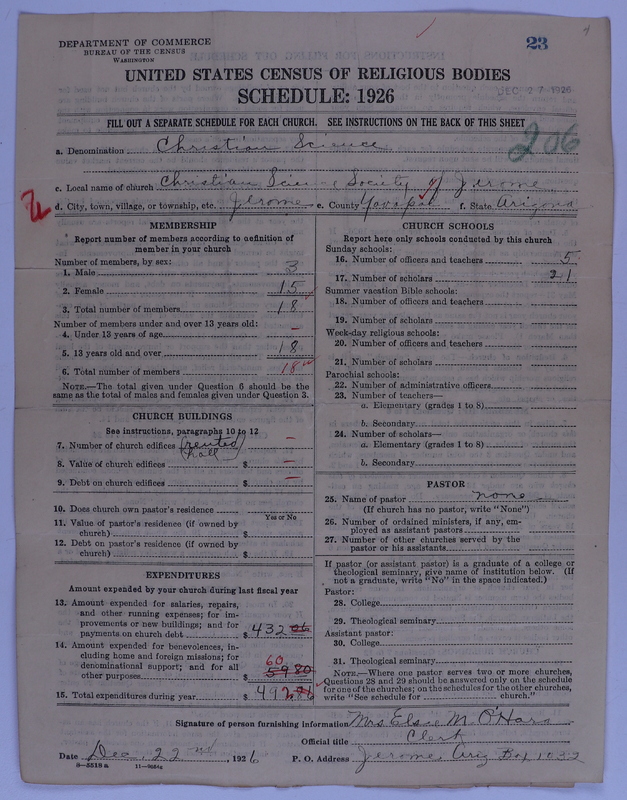 DEPARTMENT OF COMMERCE
BUREAU OF THE CENSUS
WASHINGTON
23
UNITED STATES CENSUS OF RELIGIOUS BODIES
SCHEDULE: 1926
DEC 27 1926
FILL OUT A SEPARATE SCHEDULE FOR EACH CHURCH. SEE INSTRUCTIONS ON THE BACK OF THIS SHEET
206
a. Denomination Christian Science
c. Local name of church Christian Science Society of Jerome
d. City, town, village, or township, etc. Jerome e. County Yavapai f. State Arizona
MEMBERSHIP
Report number of members according to definition of
member in your church
Number of members, by sex:
1. Male 3
2. Female 15
3. Total number of members 18
Number of members under and over 13 years old:
4. Under 13 years of age –
5. 13 years old and over 18
6. Total number of members 18
NOTE.—The total given under Question 6 should be the
same as the total of males and females given under Question 3.
CHURCH BUILDINGS
See instructions, paragraphs 10 to 12
7. Number of church edifices (rented hall) –
8. Value of church edifices $ –
9. Debt on church edifices $ –
10. Does church own pastor's residence
Yes or No
11. Value of pastor's residence (if owned by
church) $
12. Debt on pastor's residence (if owned by
church) $
EXPENDITURES
Amount expended by your church during last fiscal year
13. Amount expended for salaries, repairs,
and other running expenses; for im-
provements or new buildings; and for
payments on church debt $ 432 06
14. Amount expended for benevolences, in-
cluding home and foreign missions; for
denominational support; and for all
other purposes $ 60 59 80
15. Total expenditures during year $ 492
CHURCH SCHOOLS
Report here only schools conducted by this church
Sunday schools:
16. Number of officers and teachers 5
17. Number of scholars 21
Summer vacation Bible schools:
18. Number of officers and teachers
19. Number of scholars
Week-day religious schools:
20. Number of officers and teachers
21. Number of scholars
Parochial schools:
22. Number of administrative officers
23. Number of teachers—
a. Elementary (grades 1 to 8)
b. Secondary
24. Number of scholars—
a. Elementary (grades 1 to 8)
b. Secondary
PASTOR
25. Name of pastor none
(If church has no pastor, write "None")
26. Number of ordained ministers, if any, em-
ployed as assistant pastors
27. Number of other churches served by the
pastor or his assistants
If pastor (or assistant pastor) is a graduate of a college or
theological seminary, give name of institution below. (If
not a graduate, write "No" in the space indicated.)
Pastor:
28. College
29. Theological seminary
Assistant pastor:
30. College
31. Theological seminary
NOTE.—Where one pastor serves two or more churches,
Questions 28 and 29 should be answered only on the schedule
for one of the churches; on the schedules for the other churches,
write "See schedule for church."
Signature of person furnishing information Mrs Elsie M. O'Hara
Official title Clerk
Date Dec. 22nd, 1926 P. O. Address Jerome, Ariz Box 1032
8—5518a 11—9684a